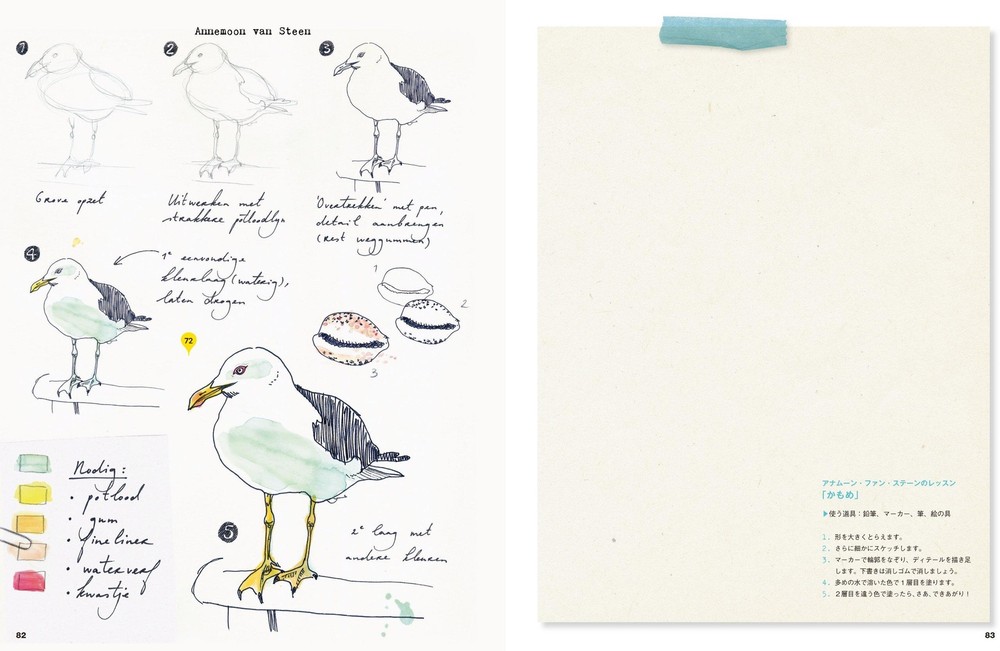 Annemoon van Steen
1
2
3
Grove opzet
Uitwerken met
strakkere potloodlijn
'Overtrekken' met pen,
detail aanbrengen
(rest weggummen)
4
1e eenvoudige
kleurlaag (waterig),
laten drogen
1
2
3
72
5
2e laag met
andere kleuren
Nodig:
• potlood
• gum
• fineliner
• waterverf
• kwastje
82
アナムーン・ファン・ステーンのレッスン
「かもめ」
▶使う道具：鉛筆、マーカー、筆、絵の具
1. 形を大きくとらえます。
2. さらに細かにスケッチします。
3. マーカーで輪郭をなぞり、ディテールを描き足
します。下書きは消しゴムで消しましょう。
4. 多めの水で溶いた色で1層目を塗ります。
5. 2層目を違う色で塗ったら、さあ、できあがり！
83